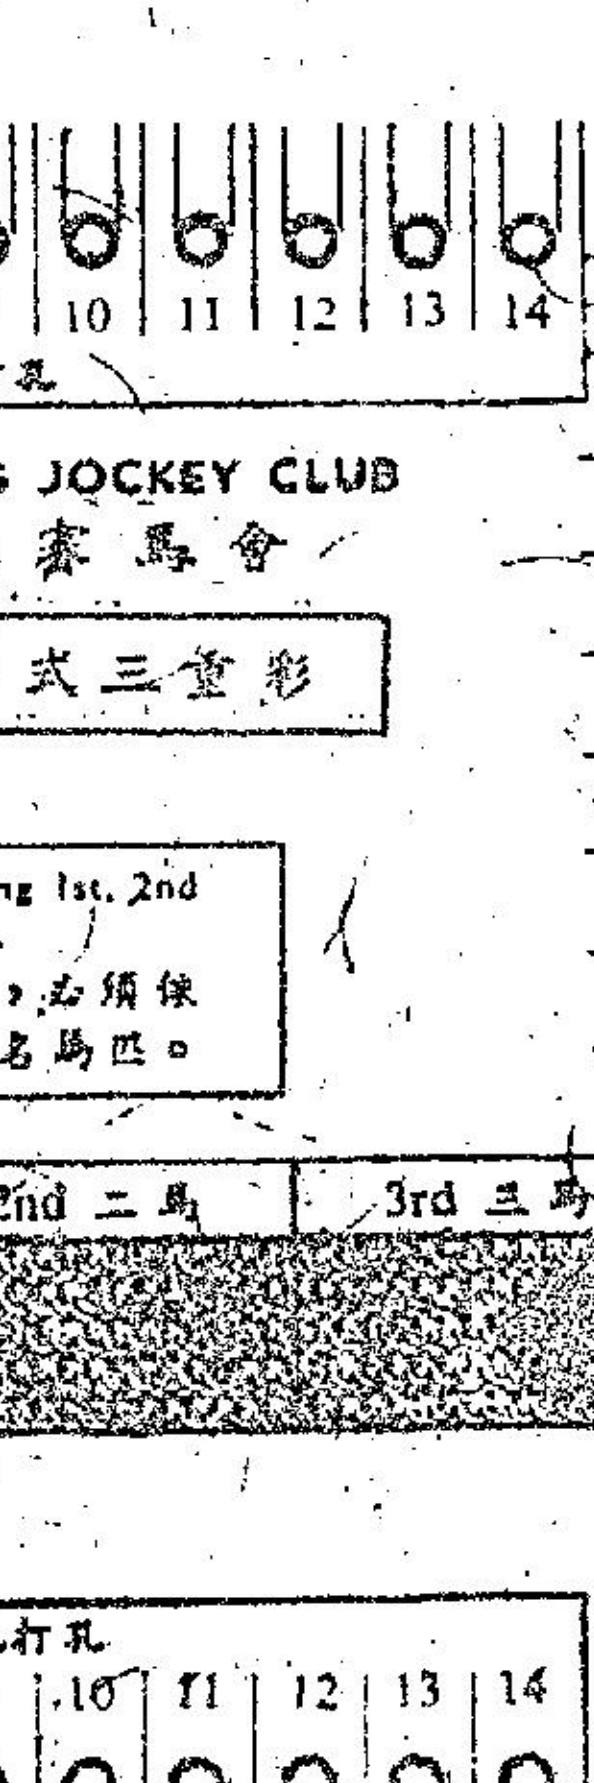 10 11 12 13 14
孔
JOCKEY CLUB
賽馬會
式三重彩
1st, 2nd
，必須
名馬匹。
2nd 二馬 3rd 三馬
打孔
10 11 12 13 14